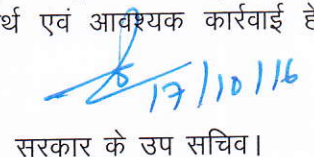 र्थ एवं आवश्यक कार्रवाई हे
17/10/16
सरकार के उप सचिव।